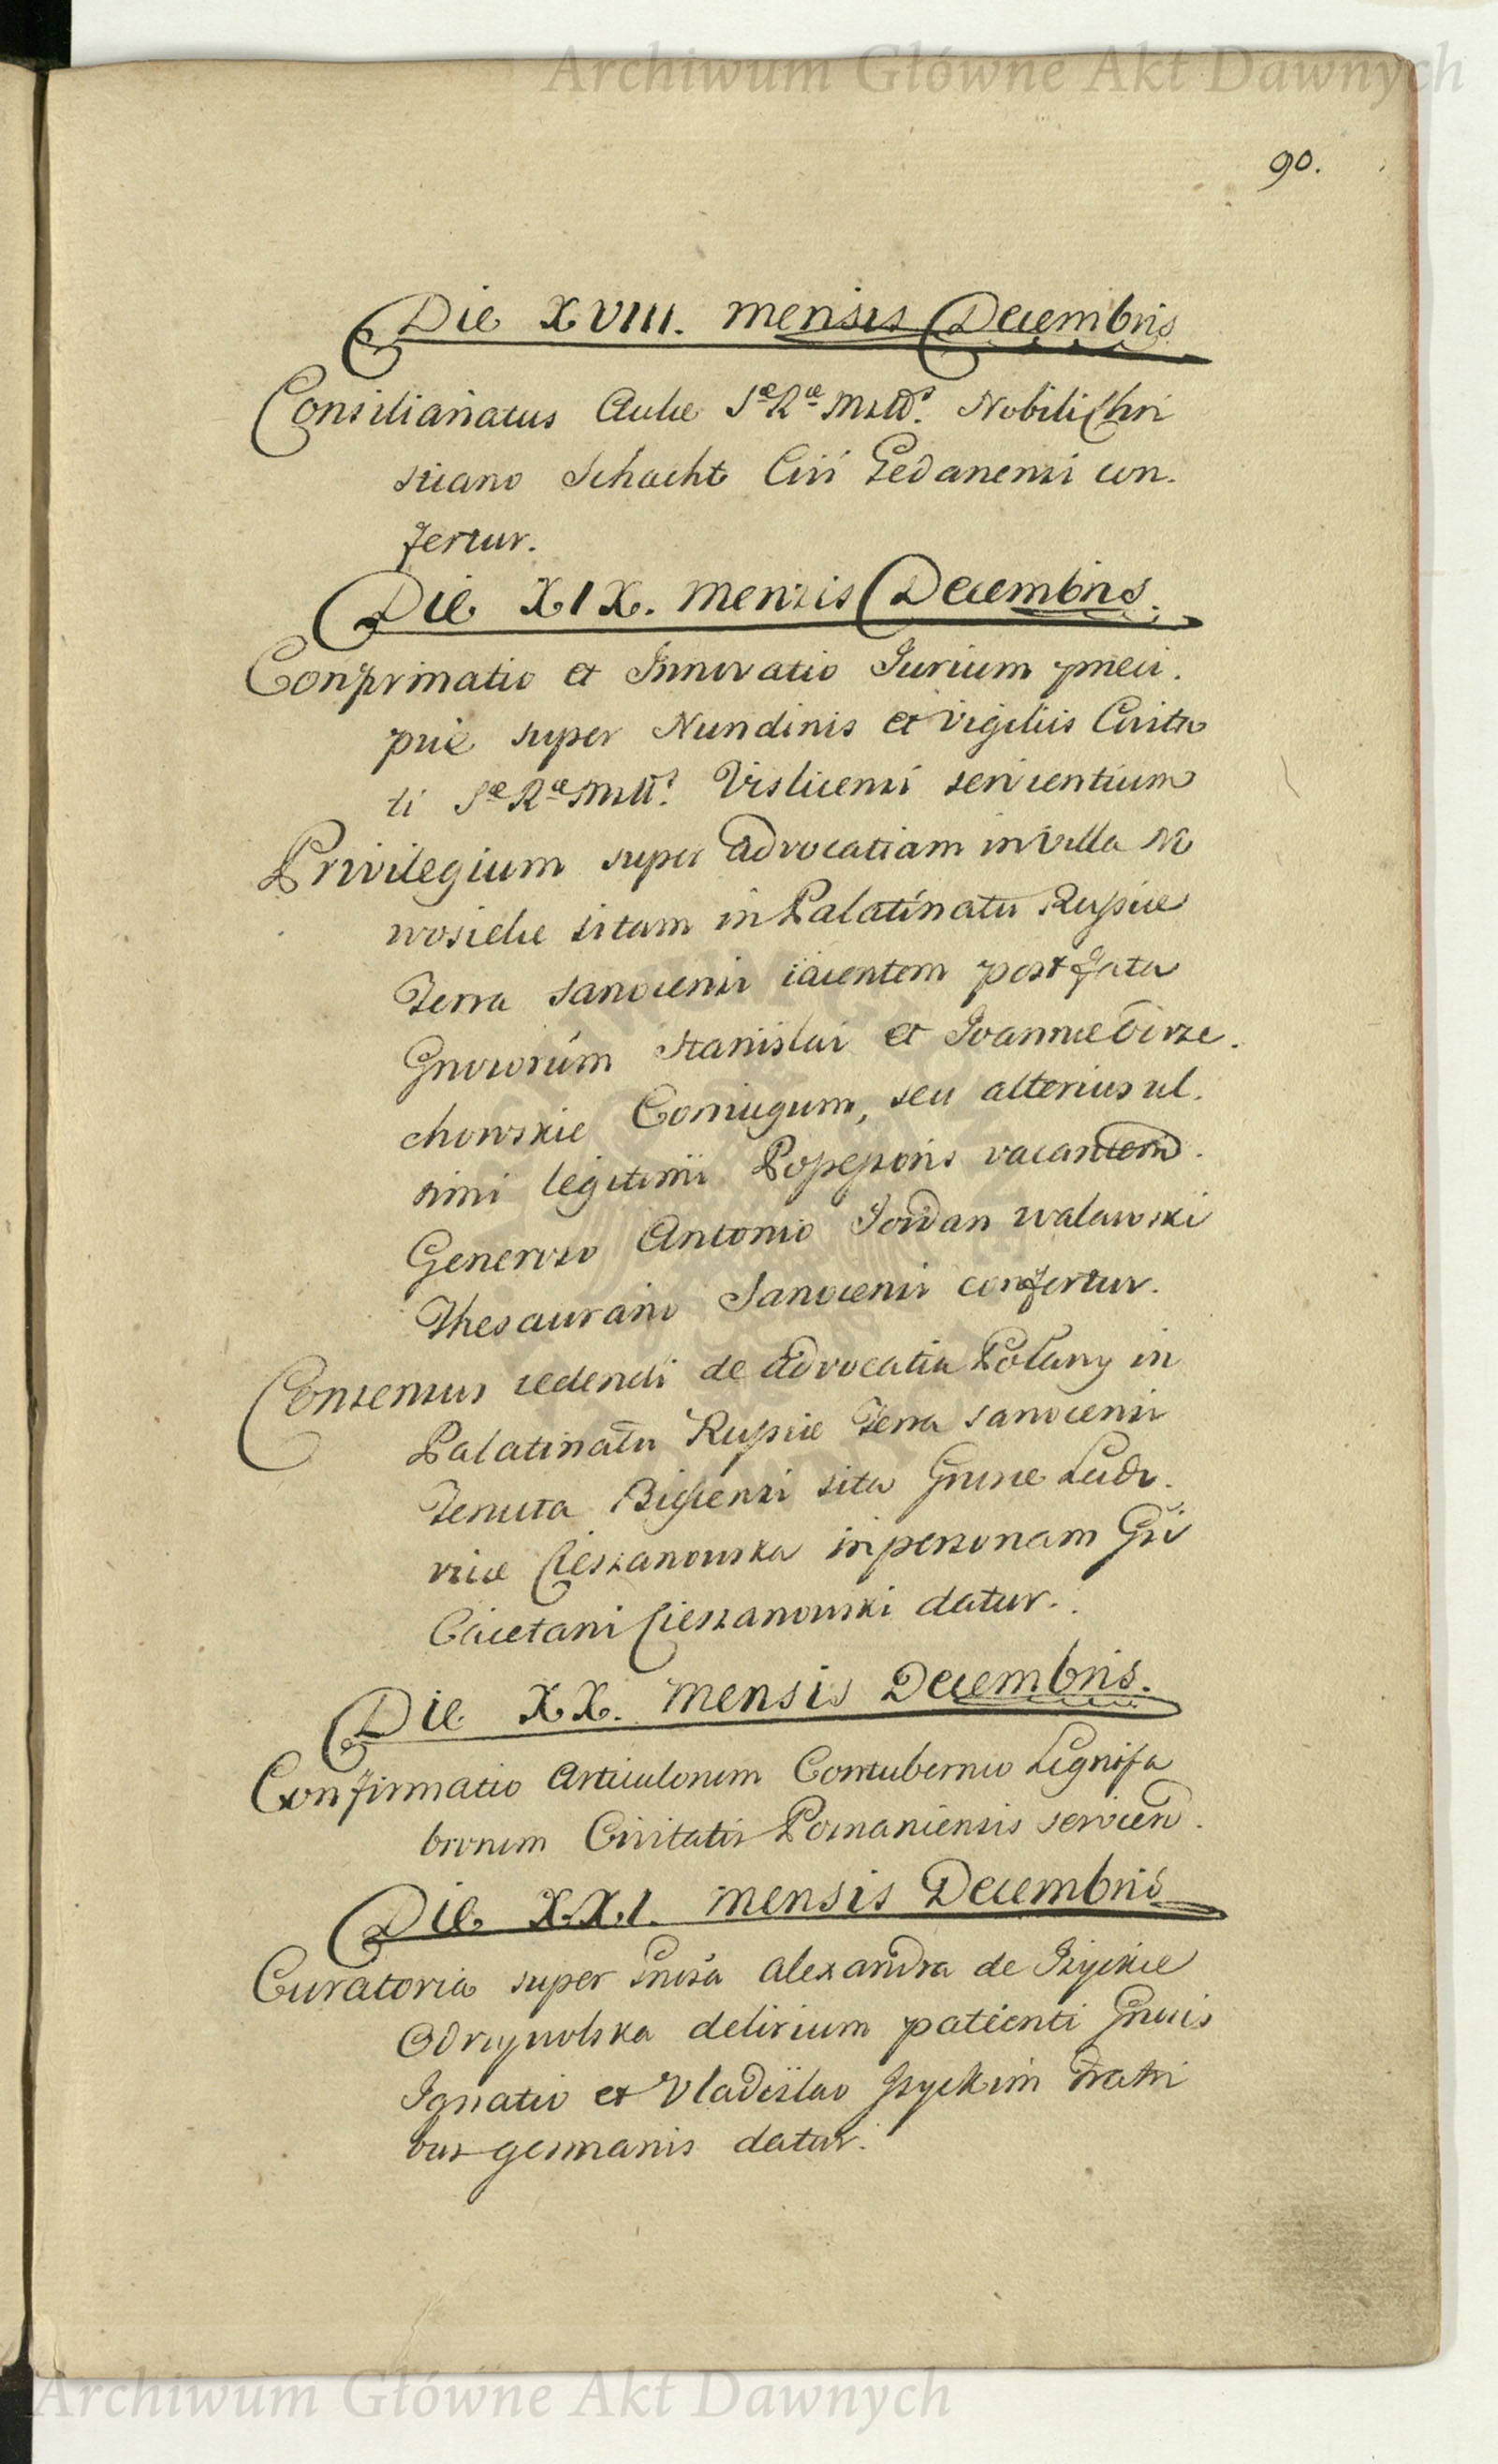 Archiwum Główne Akt Dawnych
90.
Die XVIII. mensis Decembris
Consiliariatus Aulæ Sæ Ræ Mttis. Nobili Chri
stiano Schacht Civi Gedanensi con.
fertur.
Die XIX. mensis Decembris.
Confirmatio et Innovatio Jurium præci.
pue super Nundinis et Vigiliis Civita
ti Sæ Ræ Mttis. Visliciensi servientium
Privilegium super Advocatiam in Villa No
wosielce sitam in Palatinatu Russiæ
Terra Sanocensi iacentem post fata
Gnosorum Stanislai et Joannæ Dirze.
chowskie Coniugum, seu alterius ul.
timi legitimi Possessoris vacantem.
Generoso Antonio Jordan Walawski
Thesaurario Sanocensi confertur.
Consensus cedendi de Advocatia Polany in
Palatinatu Russiæ Terra Sanocensi
Tenuta sita Gnsæ Ludo.
vicæ Cieszanowska in personam Gsi
Caietani Cieszanowski datur.
Die XX. mensis Decembris.
Confirmatio Articulorum Contubernio Lignifa
brorum Civitatis Posnaniensis servien.
Die XXI. mensis Decembris
Curatoria super Gnosa Alexandra de
Odrzywolska delirium patienti Gnosis
Ignatio et Vladislao fratri
bus germanis datur.
Archiwum Główne Akt Dawnych